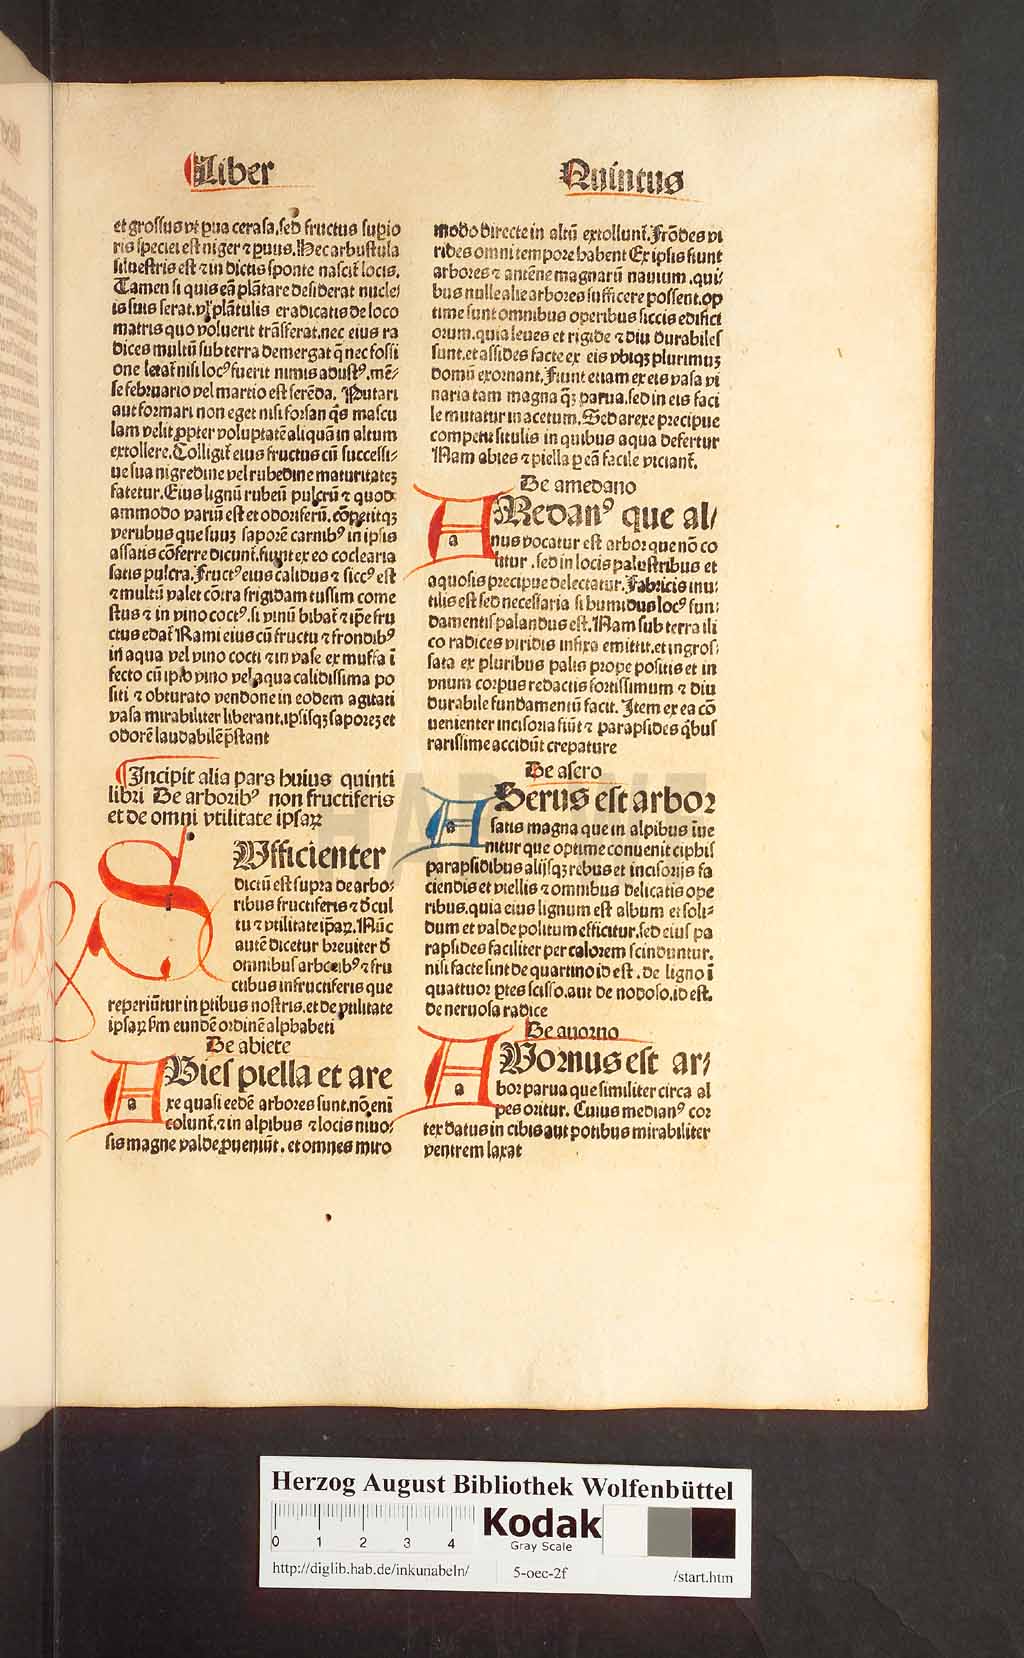 Liber
Quintus
et grossus vt vua cerasa. sed fructus supio
ris speciei est niger ⁊ puus. Hec arbustula
siluestris est ⁊ in dictis sponte nascit̃ locis.
Tamen si quis eã plãtare desiderat nucle⸗
is suis serat. vl̕ plãtulis eradicatis de loco
matris quo voluerit trãsferat. nec eius ra
dices multũ sub terra demergat q̃ nec fossi
one letat̃ nisi locꝰ fuerit nimis adustꝰ. mẽ⸗
se februario vel martio est serẽda. Putari
aut formari non eget nisi forsan q̃s mascu
lam velit ꝓpter voluptatẽ aliquã in altum
extollere. Colligit̃ eius fructus cũ successi⸗
ue sua nigredine vel rubedine maturitatez
fatetur. Eius lignũ rubeũ pulcrũ ⁊ quod
ammodo variũ est et odoriferũ. cõpetitqz
verubus que suuz saporẽ carnibꝰ in ipsis
assatis cõferre dicunt. fiunt ex eo coclearia
satis pulcra. Fructꝰ eius calidus ⁊ siccꝰ est
⁊ multũ valet cõtra frigidam tussim come
stus ⁊ in vino coctꝰ. si vinũ bibat̃ ⁊ ip̃e fru
ctus edat̃ Rami eius cũ fructu ⁊ frondibꝰ
in aqua vel vino cocti ⁊ in vase ex muffa ĩ
fecto cũ ip̃o vino vel aqua calidissima po
siti ⁊ obturato vendone in eodem agitati
vasa mirabiliter liberant. ipsisqz saporez et
odorẽ laudabilẽ p̃stant
Incipit alia pars huius quinti
libri De arboribꝰ non fructiferis
et de omni vtilitate ipsaꝝ
SUfficienter
dictũ est supra de arbo⸗
ribus fructiferis ⁊ d̕ cul
tu ⁊ vtilitate ip̃aꝝ. Nũc
autẽ dicetur breuiter d̕
omnibus arboribꝰ ⁊ fru
ctibus infructiferis que
reperiũtur in ꝑtibus nostris. et de vtilitate
ipsaꝝ s̃m eundẽ ordinẽ alphabeti
De abiete
ABies piella et are
xe quasi eedẽ arbores sunt. nõ enĩ
colunt̃. ⁊ in alpibus ⁊ locis niuo⸗
sis magne valde ꝓueniũt. et omnes miro
modo directe in altũ extollunt̃. Frõdes vi
rides omni tempore habent Ex ipsis fiunt
arbores ⁊ antẽne magnarũ nauium. qui⸗
bus nulle alie arbores sufficere possent. op
time sunt omnibus operibus siccis edifici
orum. quia leues et rigide ⁊ diu durabiles
sunt. et assides facte ex eis vbiqz plurimuz
domũ exornant. Fiunt etiam ex eis vasa vi
naria tam magna qz̃ parua. sed in eis faci
le mutatur in acetum. Sed arexe precipue
competit situlis in quibus aqua defertur
Nam abies ⁊ piella ꝑ eã facile viciant̃.
De amedano
AMedanꝰ que al⸗
nus vocatur est arbor que nõ co
litur. sed in locis palustribus et
aquosis precipue delectatur. Fabricis inu⸗
tilis est sed necessaria si humidus locꝰ fun⸗
damentis palandus est. Nam sub terra ili
co radices viridis infixa emittit. et ingros⸗
sata ex pluribus palis prope positis et in
vnum corpus redactis fortissimum ⁊ diu
durabile fundamentũ facit. Item ex ea cõ
uenienter incisoria fiũt ⁊ parapsides q̃bus
rarissime accidũt crepature
De asero
ASerus est arbor
satis magna que in alpibus inue
nitur que optime conuenit ciphis
parapsidibus alijsqz rebus et incisorijs fa
ciendis et viellis ⁊ omnibus delicatis ope
ribus. quia eius lignum est album et soli⸗
dum et valde politum efficitur. sed eius pa
rapsides faciliter per calorem scinduntur.
nisi facte sint de quartino id est. de ligno ĩ
quattuor ꝑtes scisso. aut de nodoso. id est.
de neruosa radice
De auorno
AUornus est ar⸗
bor parua que similiter circa al
pes oritur. Cuius medianꝰ cor
tex datus in cibis aut potibus mirabiliter
ventrem laxat
Herzog August Bibliothek Wolfenbüttel
0 1 2 3 4
Kodak
Gray Scale
http://diglib.hab.de/inkunabeln/ 5-oec-2f /start.htm